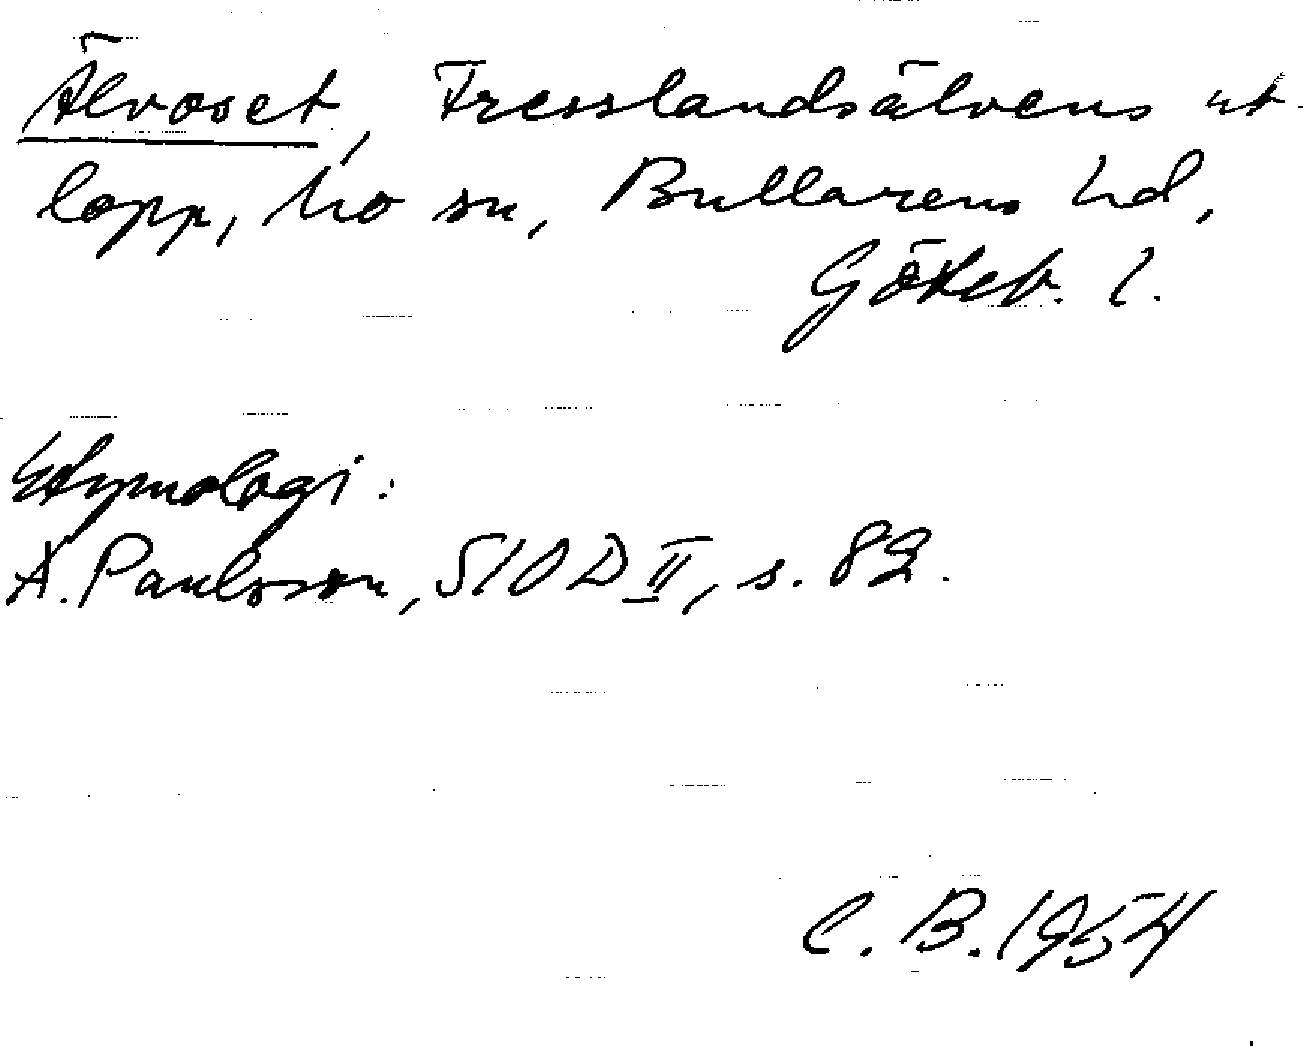 Älvoset, Tresslandsälvens ut-
lopp, Mo sn, Bullarens hd,
Göteb. l.
Etymologi:
A. Paulsson, SIOD II, s. 82.
C. B. 1954